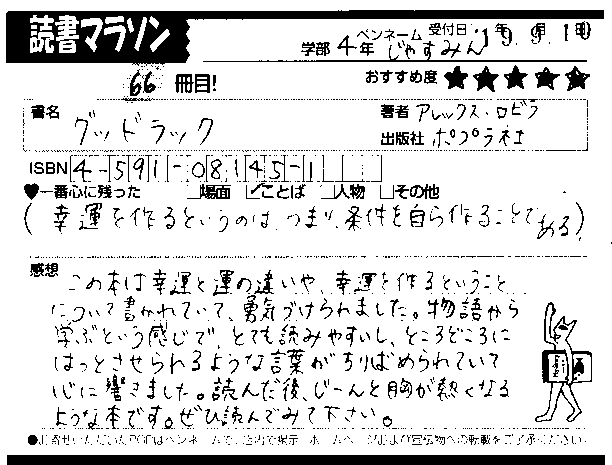 読書マラソン
学部 4年 ペンネーム じゃすみん 受付日 19年9月10日
66 冊目! おすすめ度 ★★★★★
書名 グッドラック
著者 アレックス・ロビラ
出版社 ポプラ社
ISBN 4-591-08145-1
♥一番心に残った □場面 ☑ことば □人物 □その他
(幸運を作るというのは、つまり、条件を自ら作ることである)
感想
この本は幸運と運の違いや、幸運を作るということ
について書かれていて、勇気づけられました。物語から
学ぶという感じで、とても読みやすいし、ところどころに
はっとさせられるような言葉がちりばめられていて
心に響きました。読んだ後、じーんと胸が熱くなる
ような本です。ぜひ読んでみて下さい。
●お寄せいただいたPOPはペンネームで、店内で掲示・ホームページおよび宣伝物への転載をご了承ください。